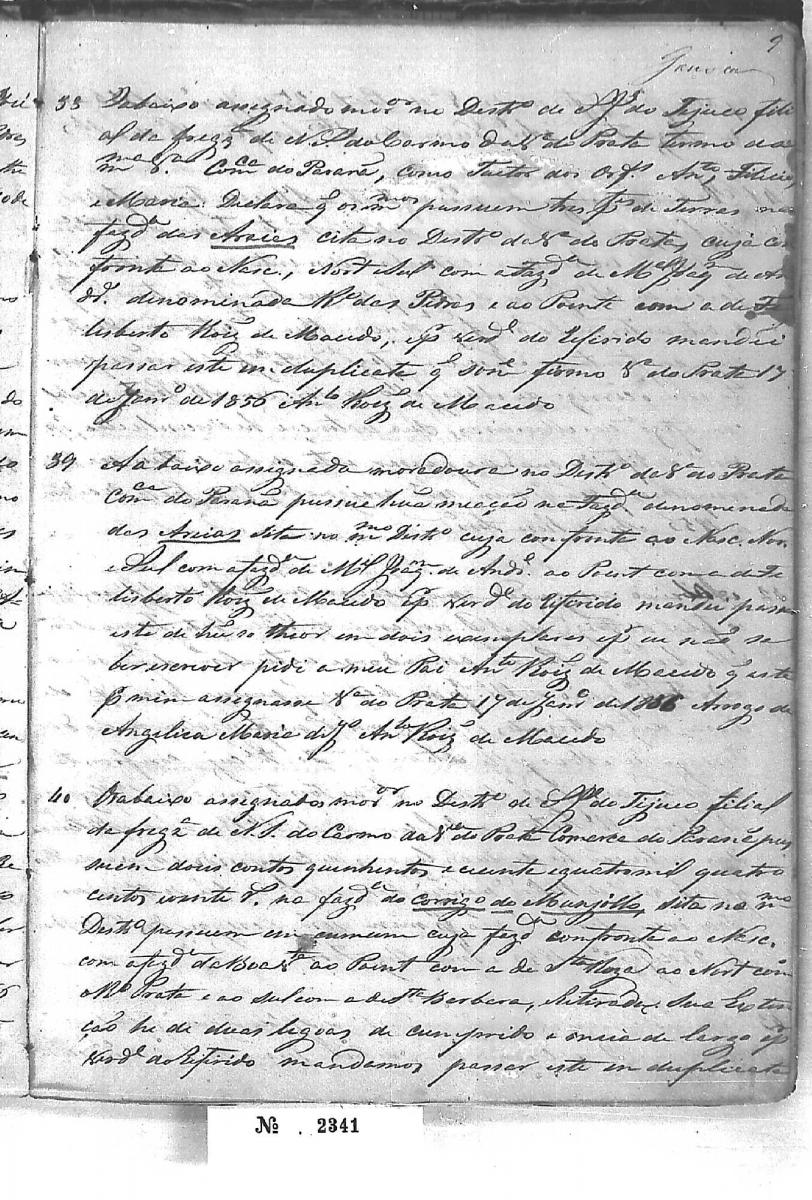 9
38 O abaixo assignado mor.or no Destr.o de S. J.e do Tejuco fili
al da freg.a de N. S. do Carmo da V.a do Prata termo da
m.ma V.a Com.ca do Paraná, como Tuctor dos Orf.s Ant.o, Felicio,
e Maria. Declara q. os m.mos possuem tres p.tes de Terras na
fazd.a das Areias cita no Destr.o da V.a do Prata, cuja con
fronte ao Nasc., Nort e Sul com a fazd.a de M.el Joaq.m de An
dr.e denomenada R.o das Pedras e ao Poente com a de Fe
lisberto Roiz de Macedo, e p.r verd.e do referido mandei
passar este em duplicata q. som.e firmo V.a do Prata 17
de Janr.o de 1856 Ant.o Roiz de Macedo
39 A abaixo assignada moradoura no Destr.o da V.a do Prata
Com.ca do Paraná possue huã meação na Fazd.a denomenada
das Areias sita no m.mo Distr.o cuja confronte ao Nasc. Nor.
e Sul com a fazd.a de M.el Joaq.m de Andr.e ao Poent com a de Fe
lisberto Roiz de Macedo E p.r verd.e do referido mandei passar
este de hũ só theor em dois exemplares e p.r eu não sa
ber escrever pedi a meu Pai Ant.o Roiz de Macedo q. este
p.r mim assignasse V.a do Prata 17 de Janr.o de 1856 Arogo de
Angelica Maria de J.s Ant.o Roiz de Macedo
40 Os abaixo assignados mor.or no Destr.o de S. J.e do Tejuco filial
da freg.a de N. S. do Carmo da V.a do Prata Comarca do Paraná pos
suem dous contos quinhentos e vinte e quatro mil quatro
centos e vinte r.s na fazd.a do corrigo do Monjollo, sita no m.mo
Destr.o possuem em cumum cuja fazd.a confronte ao Nasc.
com a fazd.a da Boa V.ta ao Poent com a de S.ta Roza ao Nort com
o R.o Prata e ao sul com a de S.ta Barbara, e sua Exten
ção he de duas legoas de cumprido e meia de largo e p.r
verd.e do referido mandamos passar este em duplicata
Nº 2341